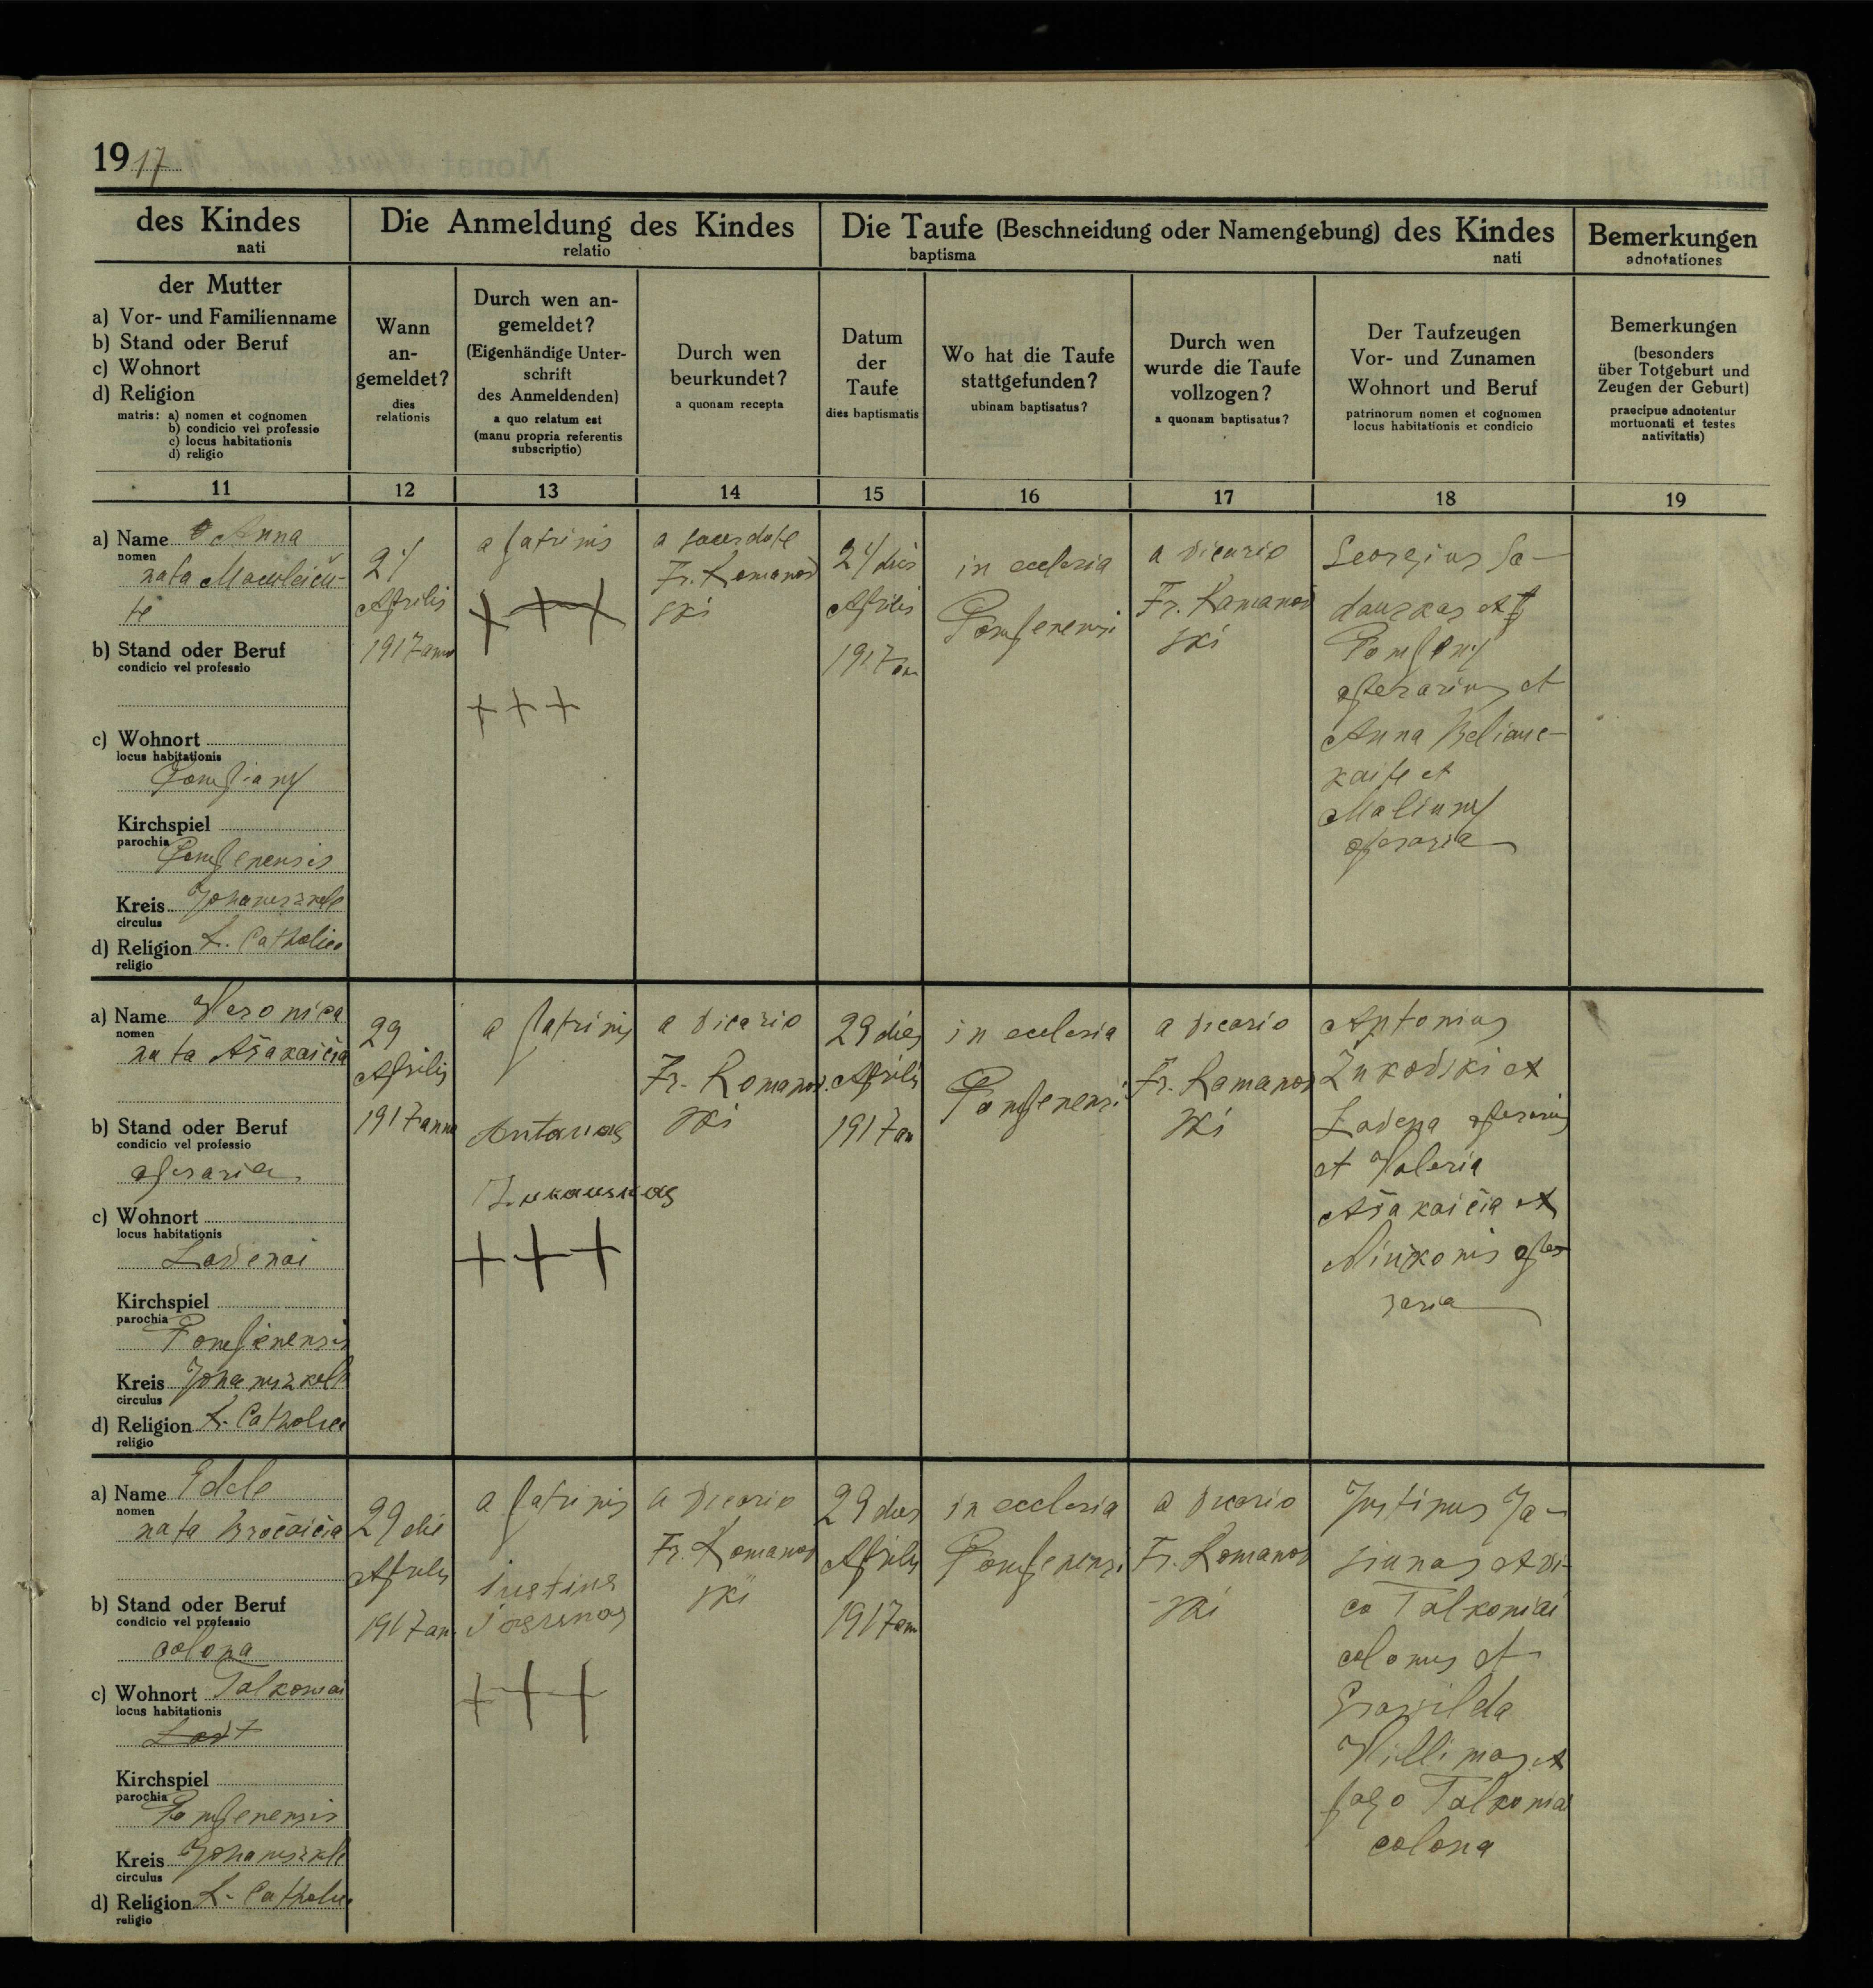 1917
des Kindes
nati
Die Anmeldung des Kindes
relatio
Die Taufe (Beschneidung oder Namengebung) des Kindes
baptisma nati
Bemerkungen
adnotationes
der Mutter
a) Vor- und Familienname
b) Stand oder Beruf
c) Wohnort
d) Religion
matris: a) nomen et cognomen
b) condicio vel professio
c) locus habitationis
d) religio
Wann
an-
gemeldet?
dies
relationis
Durch wen an-
gemeldet?
(Eigenhändige Unter-
schrift
des Anmeldenden)
a quo relatum est
(manu propria referentis
subscriptio)
Durch wen
beurkundet?
a quonam recepta
Datum
der
Taufe
dies baptismatis
Wo hat die Taufe
stattgefunden?
ubinam baptisatus?
Durch wen
wurde die Taufe
vollzogen?
a quonam baptisatus?
Der Taufzeugen
Vor- und Zunamen
Wohnort und Beruf
patrinorum nomen et cognomen
locus habitationis et condicio
Bemerkungen
(besonders
über Totgeburt und
Zeugen der Geburt)
praecipue adnotentur
mortuonati et testes
nativitatis)
11 12 13 14 15 16 17 18 19
a) Name Anna
nomen
nata
te
b) Stand oder Beruf
condicio vel professio
c) Wohnort
locus habitationis
Kirchspiel
parochia
Kreis
circulus
d) Religion R. Catholica
religio
Aprilis
1917 anno
a patrinis
+++
+++
a sacerdote
Fr. Romanov
ski
dies
Aprilis
1917 an
in ecclesia
a vicario
Fr. Romanov
ski
Georgius Sa-
dauskas et
operarius et
Anna
kaite et
operaria
a) Name Veronica
nomen
nata Ašakaičia
b) Stand oder Beruf
condicio vel professio
operaria
c) Wohnort
locus habitationis
Lavenai
Kirchspiel
parochia
Kreis
circulus
d) Religion R. Catholica
religio
29
Aprilis
1917 anno
a patrinis
Antanas
Zukauskas
+++
a vicario
Fr. Romanov
ski
29 dies
Aprilis
1917 an
in ecclesia
a vicario
Fr. Romanov
ski
Antonius
Zukovski et
Lavena operarius
et Valeria
Ašakaičia et
Ninkonis ope
raria
a) Name Edele
nomen
nata Bročaičia
b) Stand oder Beruf
condicio vel professio
colona
c) Wohnort Talkoniai
locus habitationis
Kirchspiel
parochia
Kreis
circulus
d) Religion R. Catholica
religio
29 die
Aprilis
1917 an
a patrinis
iustins
+++
a vicario
Fr. Romanov
ski
29 dies
Aprilis
1917 an
in ecclesia
a vicario
Fr. Romanov
ski
Justinus Ja-
siunas et vi-
co Talkoniai
colonus et
pago Talkoniai
colona